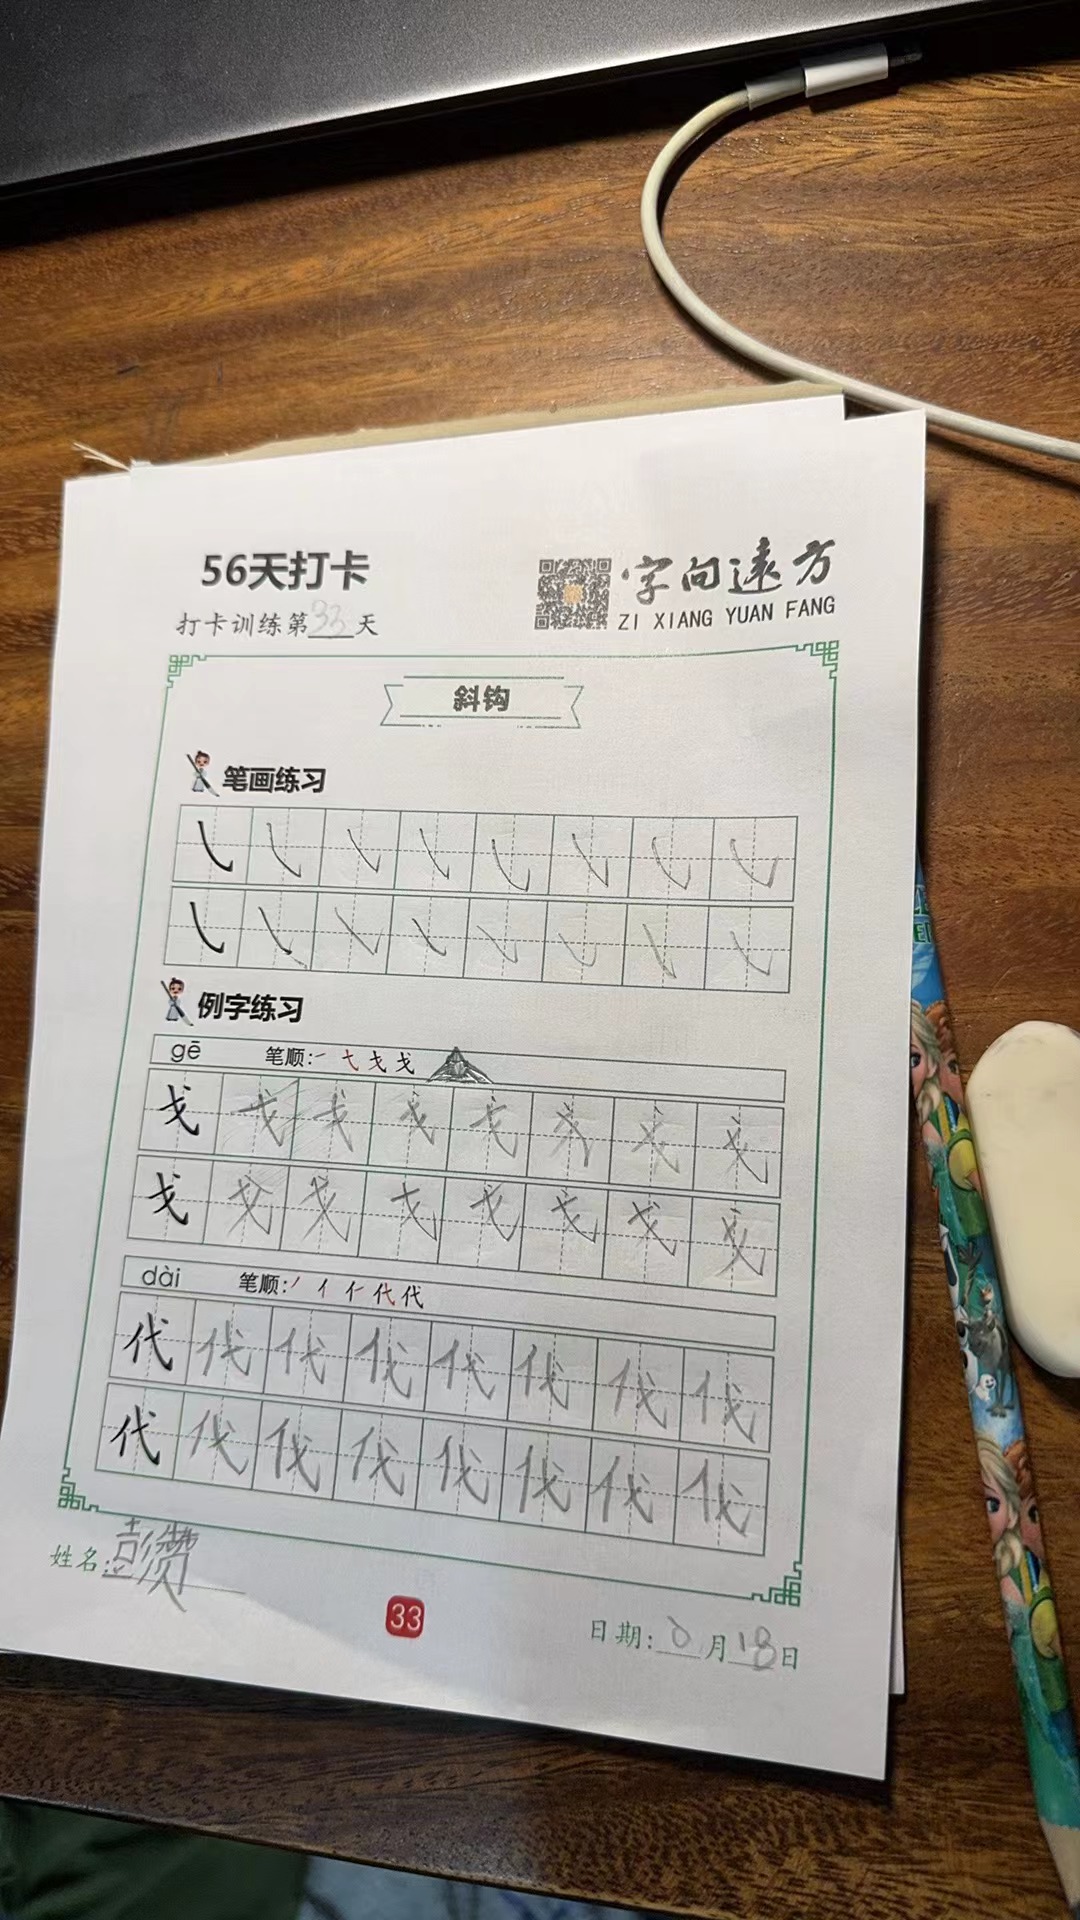 56天打卡
打卡训练第33天
字向远方
ZI XIANG YUAN FANG
斜钩
笔画练习
例字练习
gē 笔顺:
戈 戈 戈 戈 戈 戈 戈 戈
戈 戈 戈 戈 戈 戈 戈 戈
dài 笔顺: 丿 亻 仁 代 代
代 代 代 代 代 代 代 代
代 代 代 代 代 代 代 代
姓名:彭赞
33
日期: 月18日